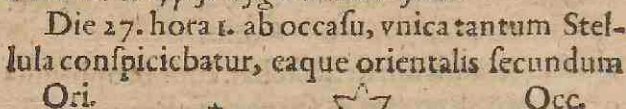 Die 27. hora 1. ab occaſu, vnica tantum Stel-
lula conſpiciebatur, eaque orientalis ſecundum
Ori. Occ.